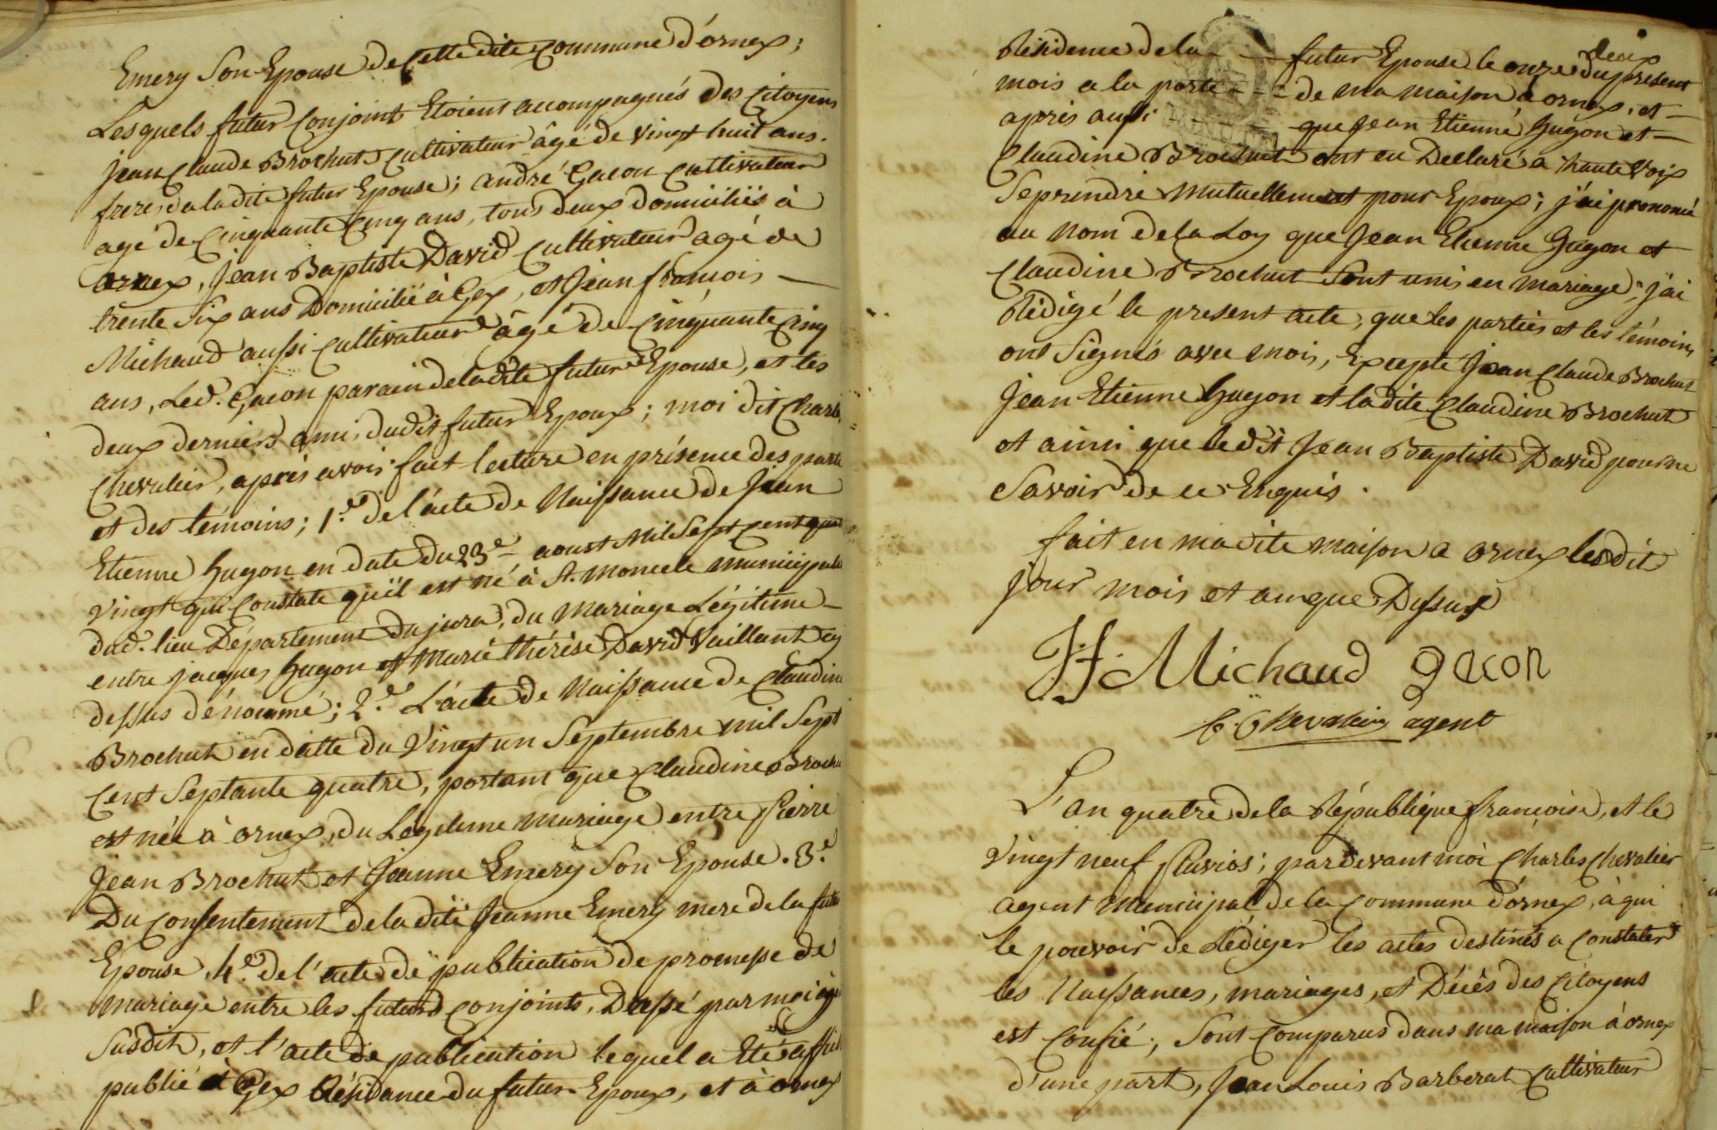 Emery Son Epouse de Cette dite Commune d'ornex;
Lesquels futur Conjoint Etoient accompagnés des Citoyens
jean Claude Brochut Cultivateur âgé de vingt huit ans.
frere de la dite futur Epouse; andré Gacon Cultivateur
agé de Cinquante Cinq ans, tous deux domiciliés à
ornex, Jean Baptiste David Cultivateur agé de
trente Six ans Domicilié à Gex, et Jean francois
Michaud aussi Cultivateur âgé de Cinquante Cinq
ans, Led. Gacon parain de ladite future Epouse, et les
deux derniers amis dudit futur Epoux; moi dit Charles
Chevalier, après avoir fait lecture en présence des parties
et des temoins; 1.º de l'acte de Naissance de Jean
Etienne hugon en date du 23e aoust Mil Sept Cent quatre
Vingt qui Constate qu'il est né à St. Moncele municipal
dud. lieu Département du jura, du Mariage Légitime
entre jacques hugon et Marie thérèse David Vaillant cy
dessus dénommé; 2.º L'acte de Naissance de Claudine
Brochut en datte du Vingt un Septembre mil Sept
Cent Septante quatre, portant que Claudine Brochut
est née à ornex, du Légitime Mariage entre Pierre
Jean Brochut et Jeanne Emery Son Epouse. 3.º
Du Consentement de la dite Jeanne Emery mere de la future
Epouse 4.º de l'acte de publication de promesse de
Mariage entre les futurs Conjoints, Dressé par moi
Susdit, et l'acte de publication lequel a Eté
publié à Gex Résidance du futur Epoux, et à ornex
Résidence de la futur Epouse le onze du present
mois a la porte de ma maison a ornex, et
après aussi que Jean Etienne hugon et
Claudine Brochut ont eu Declaré a haute Voix
Se prendre Mutuellement pour Epoux; j'ai prononcé
au Nom de la Loy que Jean Etienne hugon et
Claudine Brochut Sont unis en mariage, j'ai
Rédigé le present acte, que les parties et les témoins
ont Signés avec moi, Excepté Jean Claude Brochut
Jean Etienne hugon et ladite Claudine Brochut
et ainsi que ledit Jean Baptiste David pour ne
Savoir de ce Enquis.
fait en madite maison a ornex lesdit
jour mois et an que Dessus
Jf Michaud gacon
C. Chevalier agent
L'an quatre de la République francoise, et le
Vingt neuf Pluvios; pardevant moi Charles Chevalier
agent Municipal de la Commune d'ornex, à qui
le pouvoir de Rédiger les actes destinés a Constater
les Naissances, mariages, et Décès des Citoyens
est Confié, Sont Comparus dans ma maison à ornex
d'une part, Jean Louis Barberat Cultivateur